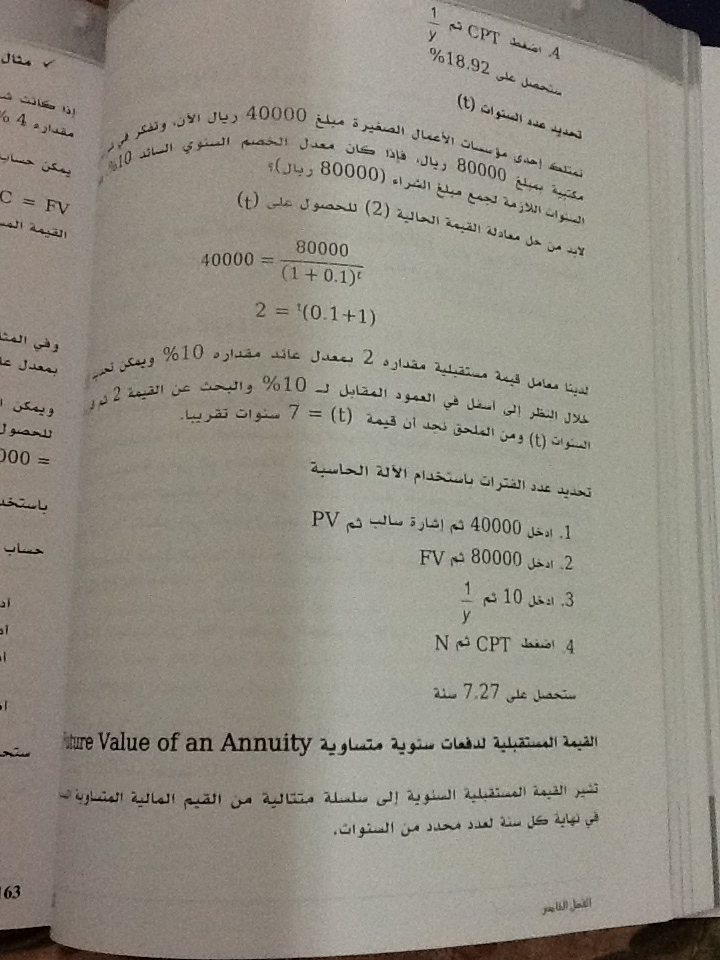 4. اضغط CPT ثم 1/y
ستحصل على 18.92%
تحديد عدد السنوات (t)
تمتلك إحدى مؤسسات الأعمال الصغيرة مبلغ 40000 ريال الآن، وتفكر في
مكتبية بمبلغ 80000 ريال، فإذا كان معدل الخصم السنوي السائد 10%
السنوات اللازمة لجمع مبلغ الشراء (80000 ريال)؟
لابد من حل معادلة القيمة الحالية (2) للحصول على (t)
40000 = 80000 / (1 + 0.1)ᵗ
2 = ᵗ(0.1+1)
لدينا معامل قيمة مستقبلية مقداره 2 بمعدل عائد مقداره 10% ويمكن
خلال النظر إلى أسفل في العمود المقابل لـ 10% والبحث عن القيمة 2 ثم
السنوات (t) ومن الملحق نجد أن قيمة (t) = 7 سنوات تقريبا.
تحديد عدد الفترات باستخدام الآلة الحاسبة
1. ادخل 40000 ثم إشارة سالب ثم PV
2. ادخل 80000 ثم FV
3. ادخل 10 ثم 1/y
4. اضغط CPT ثم N
ستحصل على 7.27 سنة
القيمة المستقبلية لدفعات سنوية متساوية uture Value of an Annuity
تشير القيمة المستقبلية السنوية إلى سلسلة متتالية من القيم المالية المتساوية
في نهاية كل سنة لعدد محدد من السنوات.
الفصل الخامس
✓ مثال
إذا كانت
مقداره 4 %
يمكن حساب
C = FV
القيمة
وفي
بمعدل
ويمكن
للحصول
000 =
حساب
163